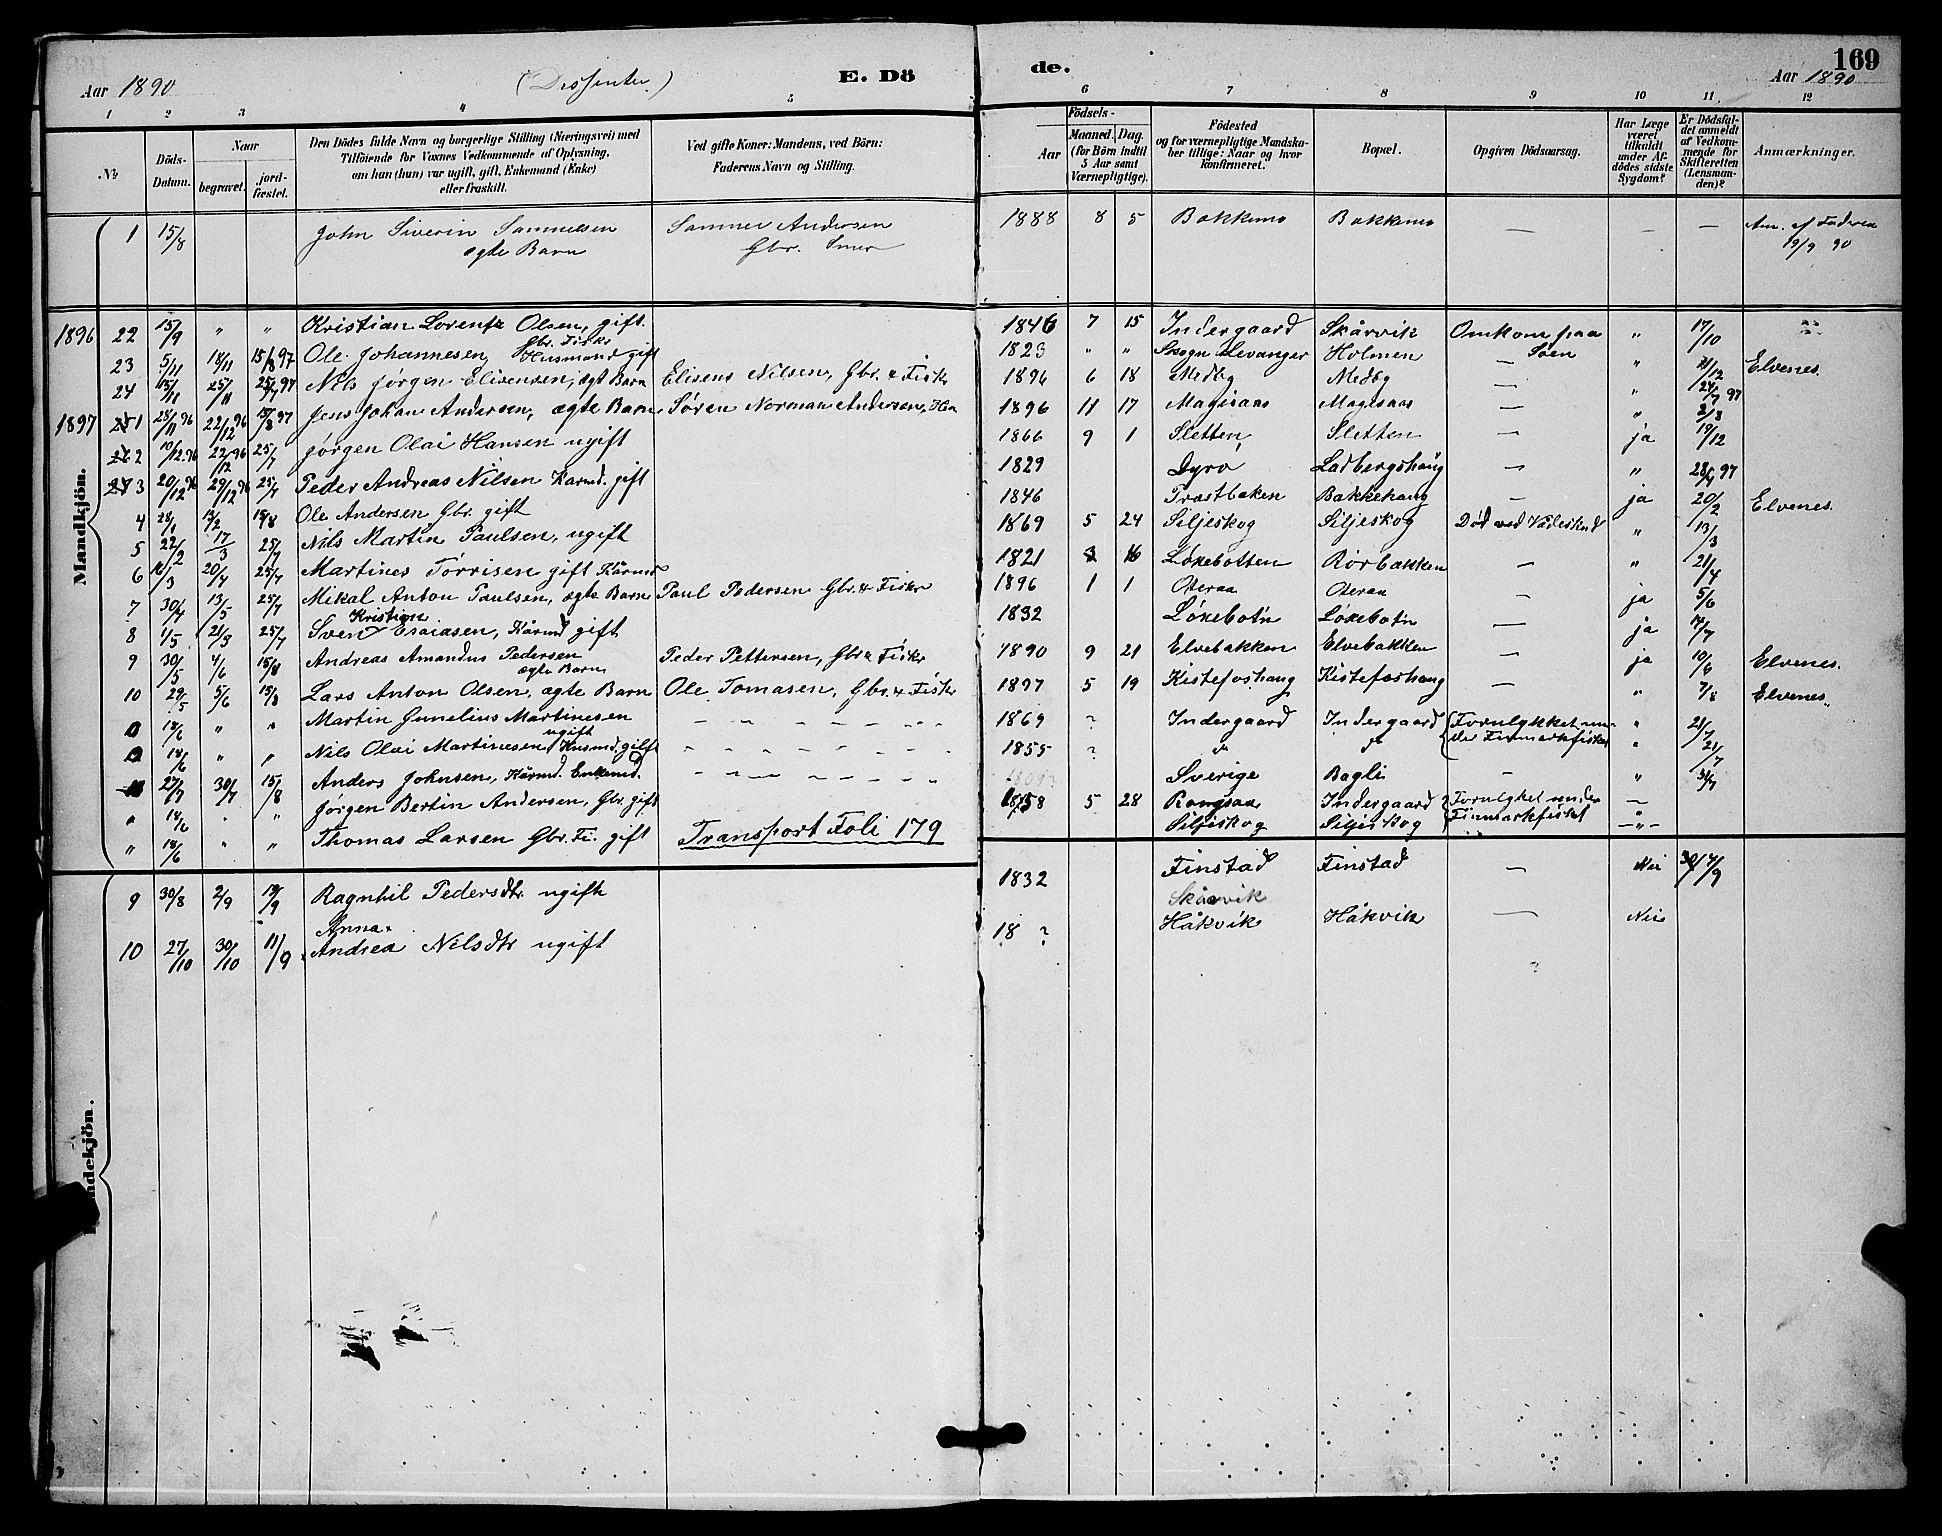 Aar 1890 (Dissenter.) E. Dö
1 2 3 4 5
№ Döds-Datum. Naar begravet. jord-fæstet. Den Dödes fulde Navn og borgerlige Stilling (Næringsvei) med Tilföiende for Voxnes Vedkommende af Oplysning, om han (hun) var ugift, gift, Enkemand (Enke) eller fraskilt. Ved gifte Koner: Mandens, ved Börn: Faderens Navn og Stilling.
Mandkjön.
1 15/8 John Siverin Samuelsen Samuel Andersen
ægte Barn Gbr.
1896 22 15/9 " " Kristian Lorentz Olsen, gift.
Gbr. Fisker
23 5/11 18/11 15/8 97 Ole Johannesen, Husmand gift
24 15/11 25/11 25/7 97 Nils Jørgen Elisensen, ægte Barn Elisens Nilsen, Gbr. & Fisker
1897 1 28/11 96 22/12 96 15/8 97 Jens Johan Andersen, ægte Barn Søren Norman Andersen,
2 12/12 96 22/12 96 25/7 Jørgen Olai Hansen ugift
3 20/12 96 29/12 96 25/7 Peder Andreas Nilsen Kaarmd. gift
4 28/1 13/2 15/8 Ole Andersen Gbr. gift
5 22/2 17/3 25/7 Nils Martin Paulsen, ugift
6 16/3 20/4 25/7 Martines Tørrisen gift Kårmd
7 30/4 13/5 25/7 Mikal Anton Paulsen, ægte Barn Paul Pedersen Gbr. & Fisker
Kristian
8 1/5 21/5 25/7 Sven Esaiasen, Kårmd gift
9 30/5 4/6 15/8 Andreas Amandus Pedersen Peder Pettersen, Gbr & Fisker
ægte Barn
10 29/5 5/6 15/8 Lars Anton Olsen, ægte Barn Ole Tomasen, Gbr. & Fisker
18/6 " " Martin Gunelius Martinesen
ugift
18/6 " " Nils Olai Martinesen, Husmd. gift
27/7 30/7 15/8 Anders Johnsen, Kårmd. Enkemd.
" 18/6 " " Jørgen Bertin Andersen, Gbr. gift
" 18/6 " " Thomas Larsen Gbr. Fi. gift Transport Foli 179
9 30/8 2/9 13/9 Ragnhil Pedersdtr. ugift
Anna
10 27/10 30/10 11/9 Andrea Nilsdtr ugift
de. Aar 1890 169
6 7 8 9 10 11 12
Födsels-
Aar Maaned. Dag. (for Börn indtil 5 Aar samt Værnepligtige). Födested og for værnepligtige Mandskaber tillige: Naar og hvor konfirmeret. Bopæl. Opgiven Dödsaarsag. Har Læge været tilkaldt under Afdödes sidste Sygdom? Er Dödsfaldet anmeldt af Vedkommende for Skifteretten (Lensmanden)? Anmærkninger.
1888 8 5 Bakkemo Bakkemo — — — Anm. af Faderen
19/9 90
1846 7 15 Indergaard Skårvik Omkom paa Søen " 17/10
1823 " " Skogn Levanger Holmen — " 21/12 Elvenes.
1896 6 18 Medby Medby — " 24/7 97
1896 11 17 Magisaas Magisaas — " 2/8
1866 9 1 Sletten Sletten — ja 19/12
1829 Dyrø Ladbergshaug — " 28/4 97
1846 Trastbaken Bakkehaug — ja 20/2 Elvenes.
1869 5 24 Siljeskog Siljeskog Død ved Vådeskud " 13/3
1821 3 16 Løkebotten Rørbakken — " 21/4
1896 1 1 Øteraa Øteraa — ja 5/6
1832 Løkebotn Løkebotn — ja 17/7
1890 9 21 Elvebakken Elvebakken — ja 10/6 Elvenes.
1897 5 19 Kistefoshaug Kistefoshaug — " 7/8 Elvenes.
1869 ? Indergaard Indergaard Forulykket under Finmarkfisket " 21/7
1855 ? do do " 21/7
Sverige Bagli — " 31/7
1858 5 28 Rangsaa Indergaard Forulyket under —
Siljeskog Siljeskog Finmarkfisket —"—
1832 Finstad Finstad — Nei 30/7/9
Skårvik
18 ? Håkvik Håkvik — Nei
?
Kvindekjön.